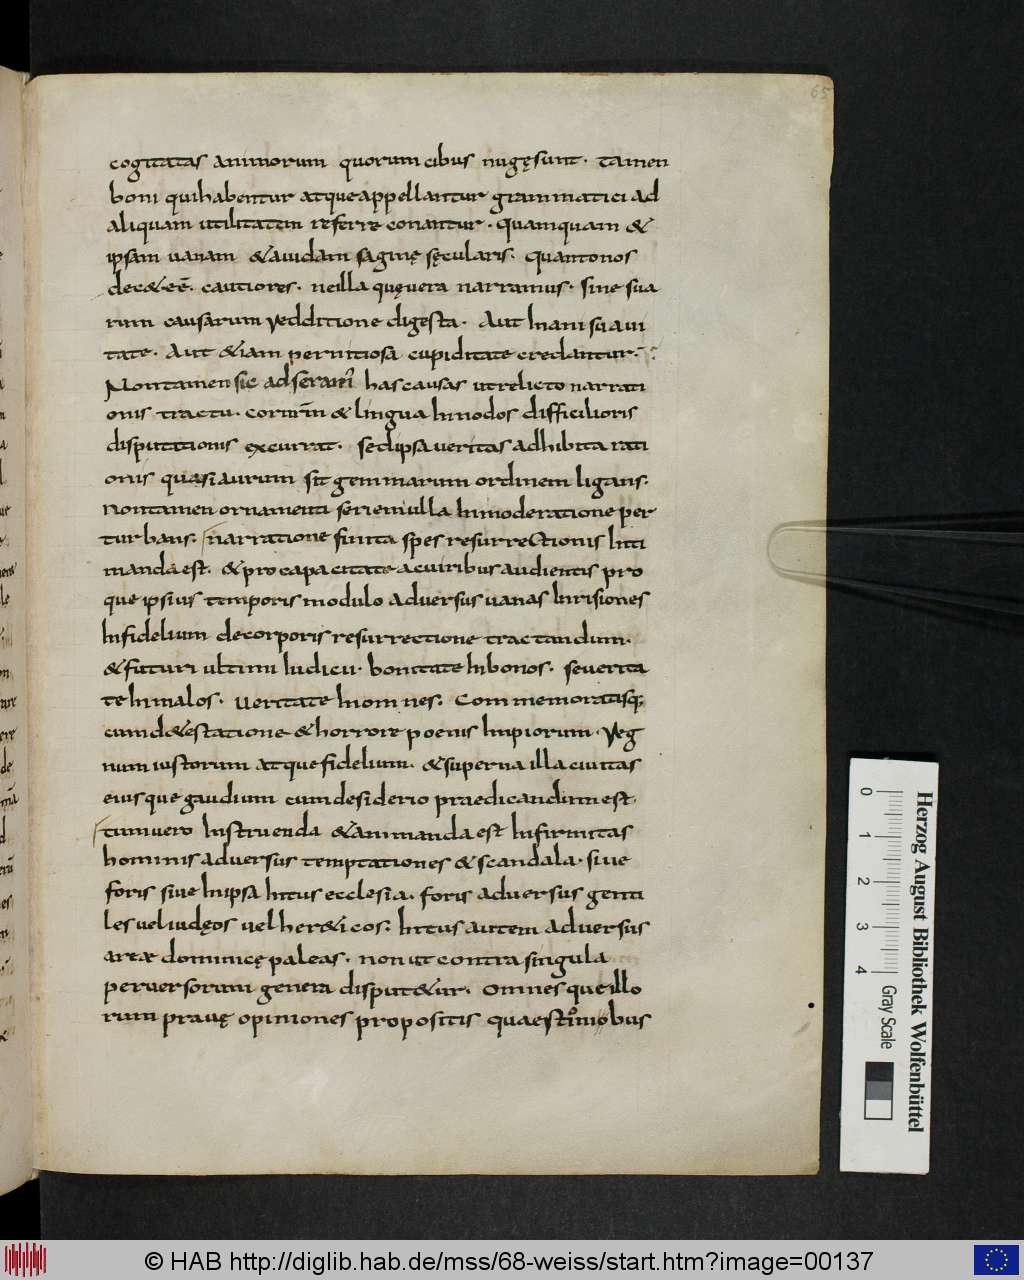 65
cogitatas animorum quorum cibus nugę sunt · tamen
boni qui habentur atque appellantur grammatici ad
aliquam utilitatem referre conantur · Quamquam &
ipsam uanam & auidam saginę sęcularis · Quanto nos
dec& eē · cautiores · ne illa quę uera narramus · sine sua
rum causarum redditione digesta · Aut Inani suaui
tate · Aut &iam pernitiosa cupiditate credantur ·
Non tamen sic adseram has causas ut relicto narrati
onis tractu · cor nrm̄ & lingua In nodos difficilioris
disputationis excurrat · sed ipsa ueritas adhibita rati
onis quasi aurum sit gemmarum ordinem ligans ·
Non tamen ornamenti seriem ulla Inmoderatione per
turbans · narratione finita spes resurrectionis Inti
manda est · & pro capacitate ac uiribus audientis pro
que ipsius temporis modulo aduersus uanas Inrisiones
Infidelium de corporis resurrectione tractandum ·
& futuri ultimi Iudicii · bonitate In bonos · seuerita
te In malos · Ueritate In omnes · Commemoratisq;
cum d&estatione & horrore poenis Impiorum · Reg
num iustorum atque fidelium · & superna illa ciuitas
eiusque gaudium cum desiderio praedicandum est ·
tum uero Instruenda & animanda est Infirmitas
hominis aduersus temptationes & scandala · siue
foris siue In ipsa Intus ecclesia · foris aduersus genti
les uel iudęos uel her&icos · Intus autem aduersus
areæ dominicę paleas · non ut contra singula
peruersorum genera disput&ur · Omnesque illo
rum prauę opiniones propositis quaestionibus
Herzog August Bibliothek Wolfenbüttel
0 1 2 3 4 Gray Scale
© HAB http://diglib.hab.de/mss/68-weiss/start.htm?image=00137